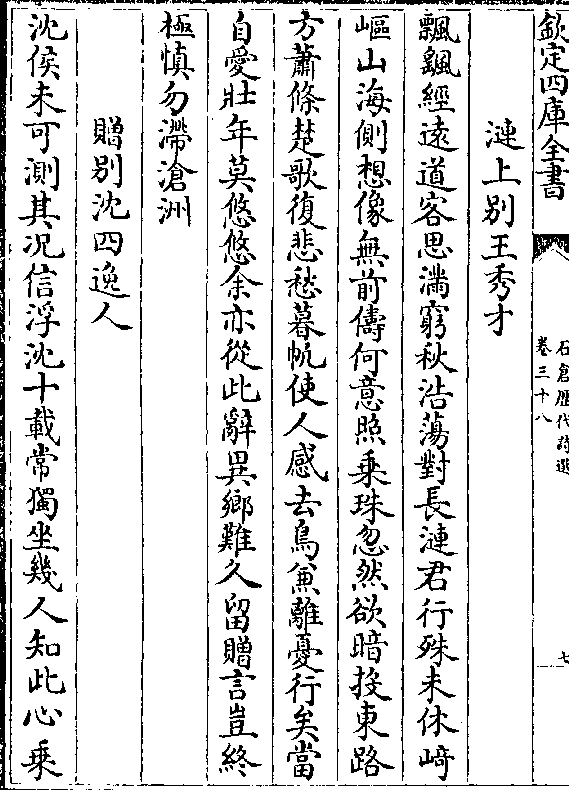 欽定四庫全書
石倉歷代詩選
卷三十八
七
漣上别王秀才
飄飖經遠道客思滿窮秋浩蕩對長漣君行殊未休﨑
嶇山海側想像無前儔何意照乗珠忽然欲暗投東路
方蕭條楚歌復悲愁暮帆使人感去鳥兼離憂行矣當
自愛壯年莫悠悠余亦從此辭異鄉難久留贈言豈終
極慎勿滯滄洲
贈别沈四逸人
沈侯未可測其况信浮沈十載常獨坐幾人知此心乗